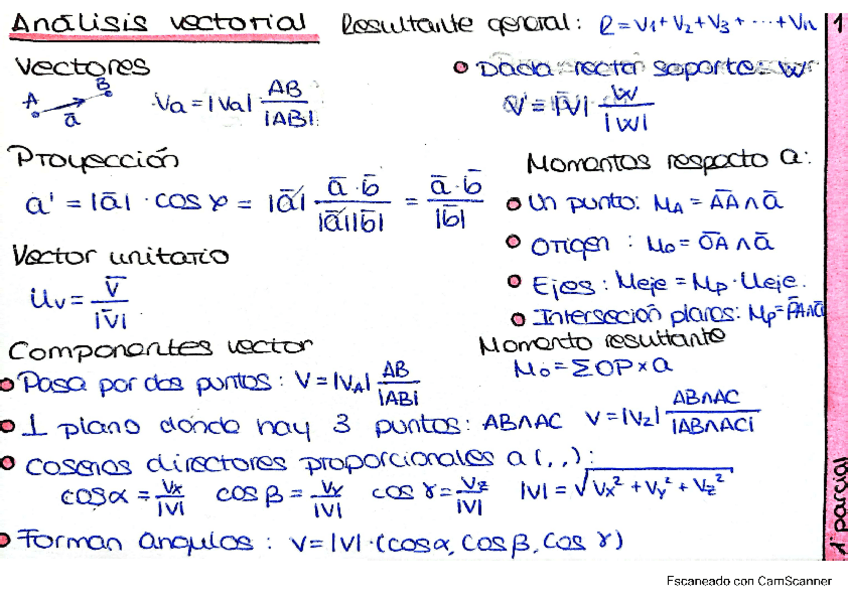 Análisis vectorial
Resultante general: R = V1 + V2 + V3 + ... + Vn
1
Vectores
A B ā
Va = |Va| · AB / |AB|
Dada recta soporte = W
V = |V| · W / |W|
Proyección
a' = |ā| · cos φ = |ā| · ā · b̄ / |ā||b̄| = ā · b̄ / |b̄|
Momentos respecto a:
Un punto: MA = ĀA ∧ ā
Origen : Mo = ŌA ∧ ā
Ejes : Meje = Mp · Ueje.
Interseción planos: Mp = P̄A ∧ ā
Vector unitario
Uv = V̄ / |V|
Momento resultante
Mo = Σ OP × a
Componentes vector
Pasa por dos puntos : V = |VA| AB / |AB|
⊥ plano donde hay 3 puntos: AB∧AC V = |V2| AB∧AC / |AB∧AC|
cosenos directores proporcionales a ( , , ) :
cos α = Vx / |V| cos β = Vy / |V| cos γ = Vz / |V| |V| = √Vx² + Vy² + Vz²
Forman angulos : V = |V| · (cos α, cos β, cos γ)
1º parcial
Escaneado con CamScanner